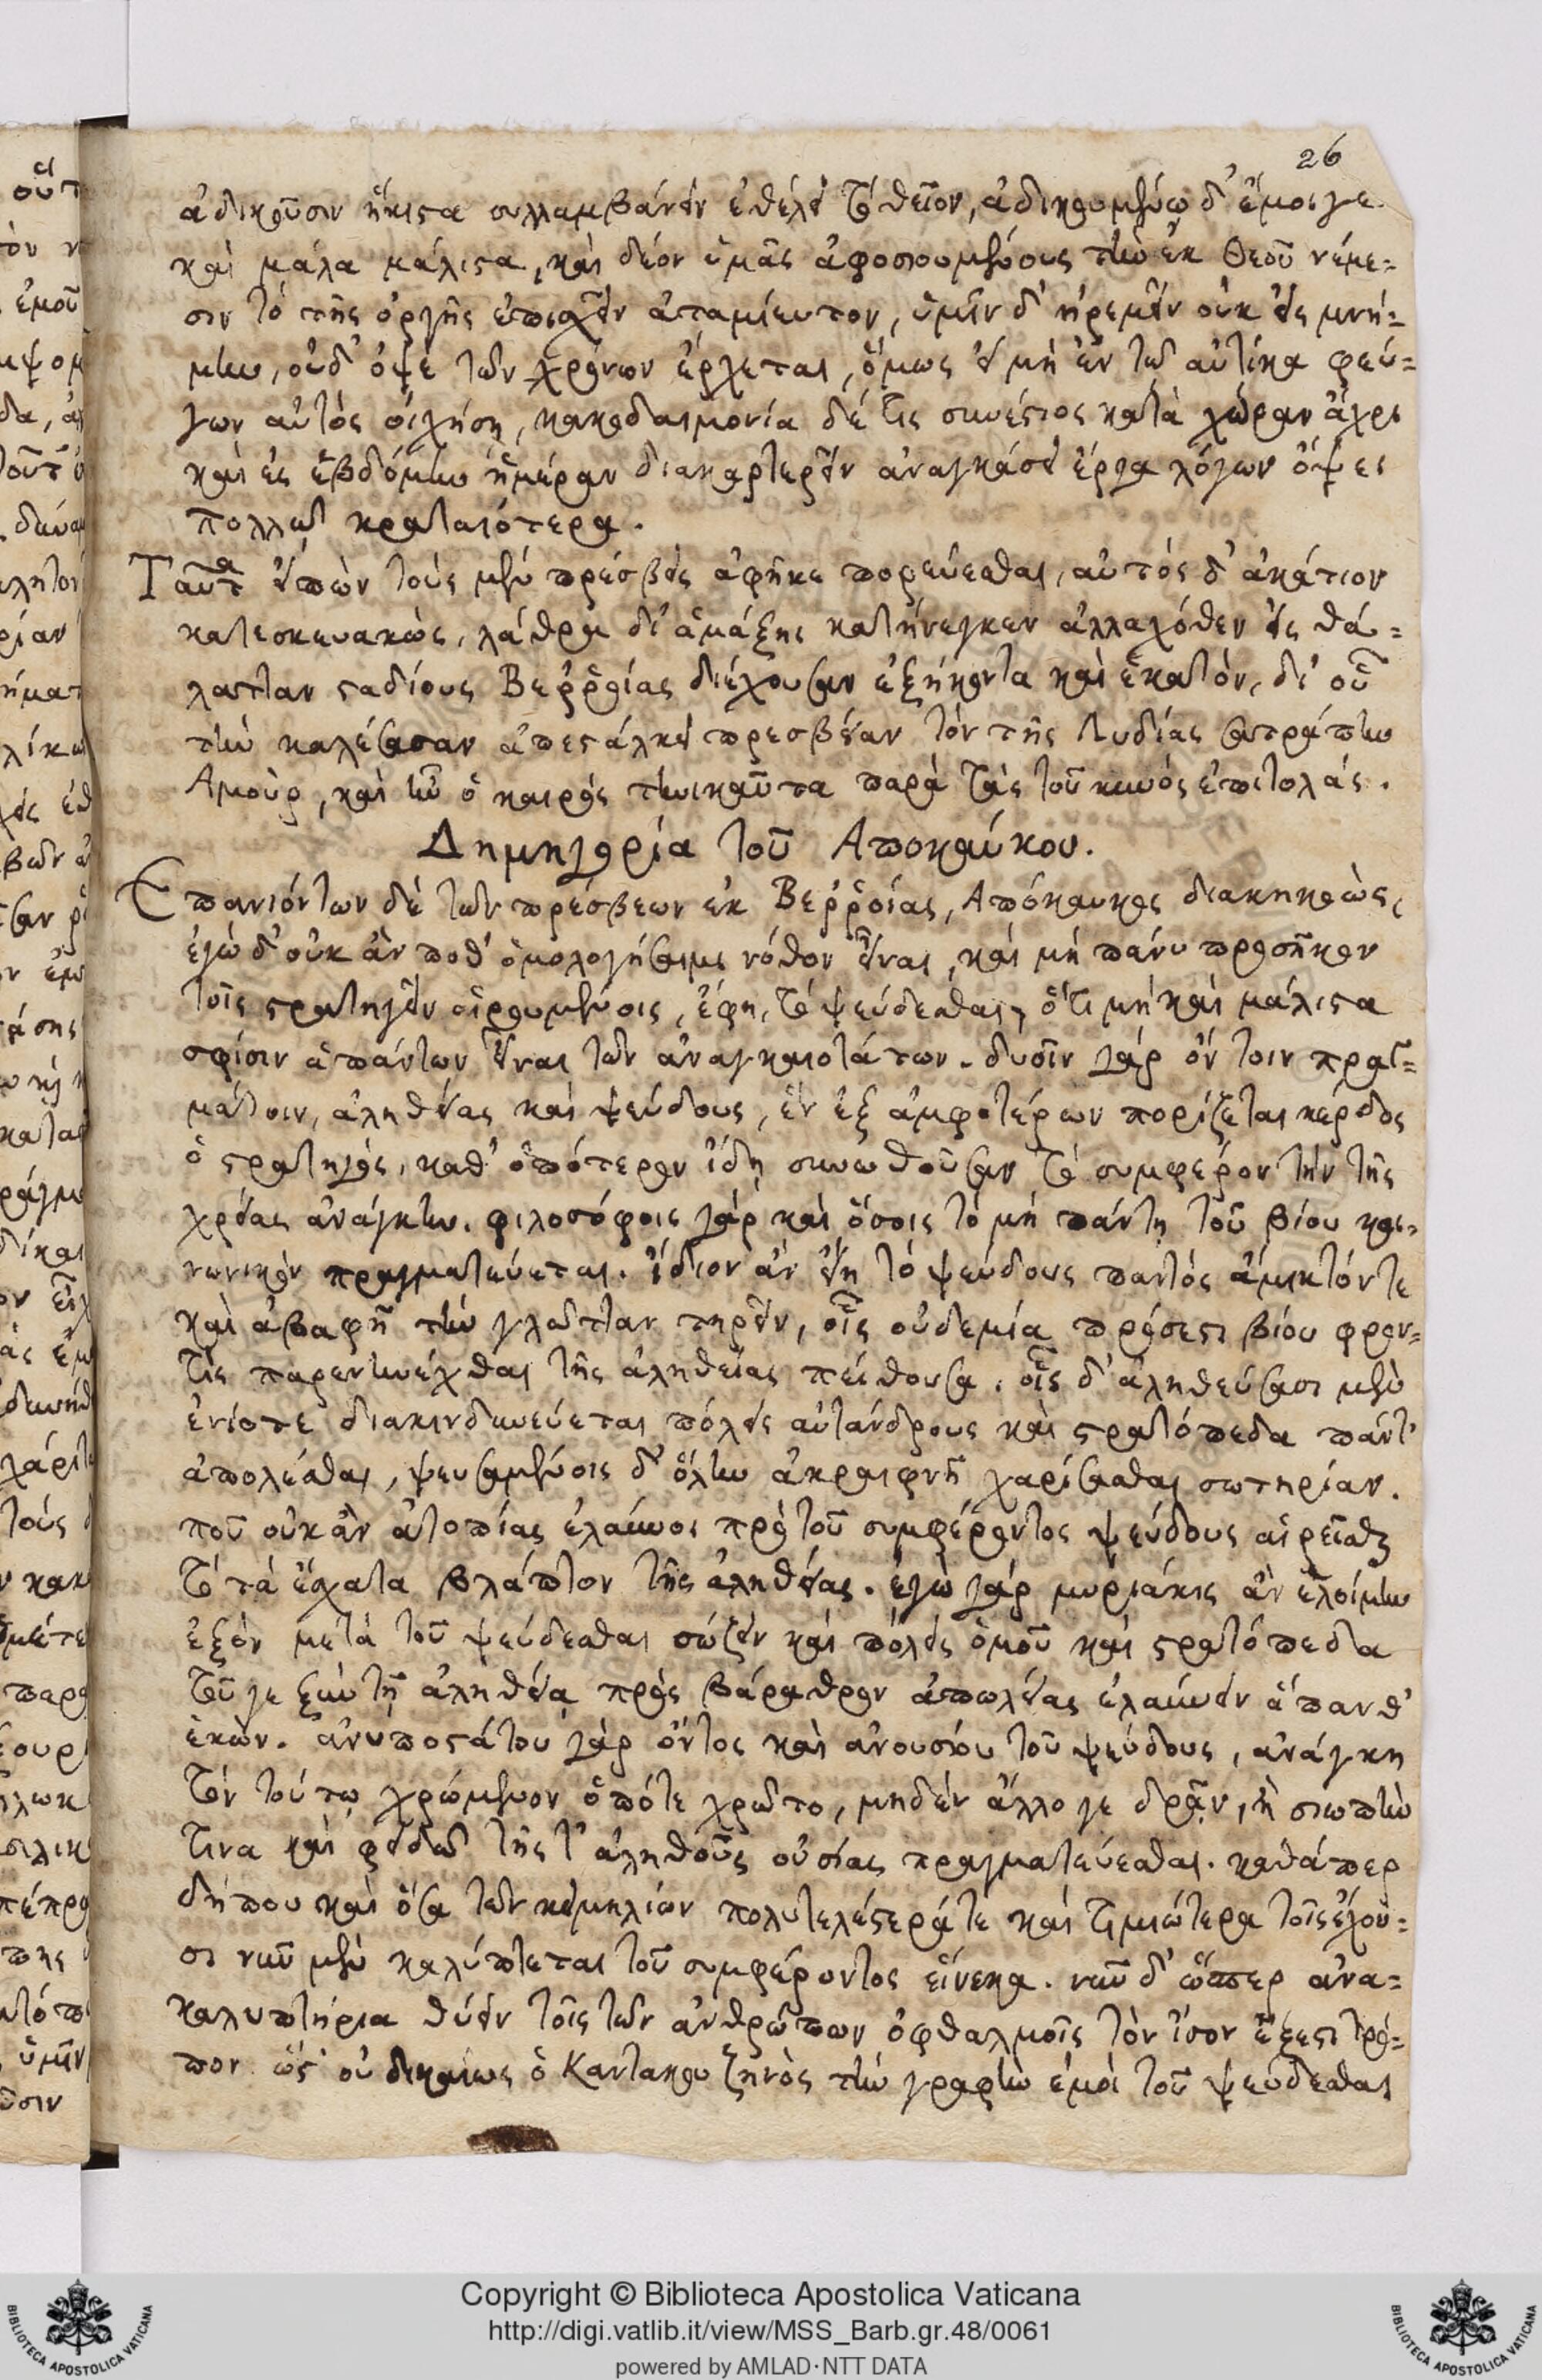 26
ἀδικοῦσιν ἥκιστα συλλαμβάνειν ἐθέλει τὸ θεῖον, ἀδικουμένῳ δ' ἔμοιγε
καὶ μάλα μάλιστα, καὶ δέον ὑμᾶς ἀφοσιουμένους τὴν ἐκ Θεοῦ νέμε=
σιν τὸ τῆς ὀργῆς ἐπισχεῖν ἀταμίευτον, ὑμῖν δ' ἠρεμεῖν οὐκ εἰς μνή=
μην, οὐδ' ὀψὲ τῶν χρόνων ἔρχεται, ὅμως εἰ μὴ ἐν τῷ αὐτίκα φεύ=
γων αὐτὸς οἰχήση, κακοδαιμονία δέ τις συνέστιος κατὰ χώραν ἄχρι
καὶ ἐς ἑβδόμην ἡμέραν διακαρτερεῖν ἀναγκάσει ἔργα λόγων ὄψει
πολλῷ κραταιότερα.
Ταῦτα εἰπὼν τοὺς μὲν πρέσβεις ἀφῆκε πορεύεσθαι, αὐτὸς δ' ἀκάτιον
κατεσκευακὼς, λάθρα δι' ἁμάξης κατήνεγκεν ἀλλαχόθεν εἰς θά=
λατταν σταδίους Βεῤῥοίας διέχουσαν ἑξήκοντα καὶ ἑκατὸν, δι' οὗ
τὴν καλέσασαν ἀπεστάλκει πρεσβείαν τὸν τῆς Λυδίας σατράπην
Ἀμοὺρ, καὶ ἦν ὁ καιρὸς τηνικαῦτα παρὰ τὰς τοῦ κυνὸς ἐπιτολάς.
Δημηγορία τοῦ Ἀποκαύκου.
Ἐπανιόντων δὲ τῶν πρέσβεων ἐκ Βεῤῥοίας, Ἀπόκαυκος διακηκοὼς,
ἐγὼ δ' οὐκ ἄν ποθ' ὁμολογήσαιμι νόθον εἶναι, καὶ μὴ πάνυ προσῆκον
τοῖς στρατηγεῖν αἱρουμένοις, ἔφη, τὸ ψεύδεσθαι, ὅτι μὴ καὶ μάλιστα
σφίσιν ἁπάντων εἶναι τῶν ἀναγκαιοτάτων. δυοῖν γὰρ ὄντοιν πραγ=
μάτοιν, ἀληθείας καὶ ψεύδους, ἓν ἐξ ἀμφοτέρων πορίζεται κέρδος
ὁ στρατηγὸς, καθ' ὁπότερον ἴδῃ συνωθοῦσαν τὸ συμφέρον τὴν τῆς
χρείας ἀνάγκην. φιλοσόφοις γὰρ καὶ ὅσοις τὸ μὴ πάντῃ τοῦ βίου κοι=
νωνικὸν πραγματεύεται. ἴδιον ἂν εἴη τὸ ψεύδους παντὸς ἄμικτόν τε
καὶ ἀβαφῆ τὴν γλῶτταν τηρεῖν, οἷς οὐδεμία πρόσεστι βίου φρον=
τὶς παρενηνέχθαι τῆς ἀληθείας πείθουσα. οἷς δ' ἀληθεύσασι μὲν
ἐνίοτε διακινδυνεύεται πόλεις αὐτάνδρους καὶ στρατόπεδα πάντ'
ἀπολέσθαι, ψευσαμένοις δ' ὅλην ἀκραιφνῆ χαρίσασθαι σωτηρίαν.
ποῦ οὐκ ἂν ἀτοπίας ἐλαύνοι πρὸ τοῦ συμφέροντος ψεύδους αἱρεῖσθαι
τὸ τὰ ἔσχατα βλάπτον τῆς ἀληθείας. ἐγὼ γὰρ μυριάκις ἂν ἑλοίμην
ἐξὸν μετὰ τοῦ ψεύδεσθαι σώζειν καὶ πόλεις ὁμοῦ καὶ στρατόπεδα
τοῦ γε ξὺν τῇ ἀληθείᾳ πρὸς βάραθρον ἀπωλείας ἐλαύνειν ἅπανθ'
ἑκών. ἀνυποστάτου γὰρ ὄντος καὶ ἀνουσίου τοῦ ψεύδους, ἀνάγκη
τὸν τούτῳ χρώμενον ὁπότε χρῶτο, μηδὲν ἄλλο γε δρᾷν, ἢ σιωπὴν
τινα καὶ φειδὼ τῆς τ' ἀληθοῦς οὐσίας πραγματεύεσθαι. καθάπερ
δήπου καὶ ὅσα τῶν κειμηλίων πολυτελέστερά τε καὶ τιμιώτερα τοῖς ἔχου=
σι νῦν μὲν καλύπτεται τοῦ συμφέροντος εἵνεκα. νῦν δ' ὥσπερ ἀνα=
καλυπτήρια θύειν τοῖς τῶν ἀνθρώπων ὀφθαλμοῖς τὸν ἴσον ἔξεστι τρό=
πον. ὥστ' οὐ δικαίως ὁ Καντακουζηνὸς τὴν γραφὴν ἐμοὶ τοῦ ψεύδεσθαι
Copyright © Biblioteca Apostolica Vaticana
http://digi.vatlib.it/view/MSS_Barb.gr.48/0061
powered by AMLAD·NTT DATA
BIBLIOTECA APOSTOLICA VATICANA
BIBLIOTECA APOSTOLICA VATICANA